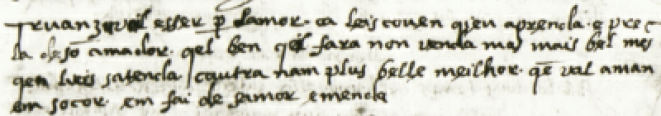 Truanz voil esser p damor. ca leis coven qieu aprenda. e pre
la de son amador. qel ben qel fara non venda mas mais bel mes
qen leis satenda coutra nam plus belle meilhor. qe val aman
em socor em fai de samor emenda